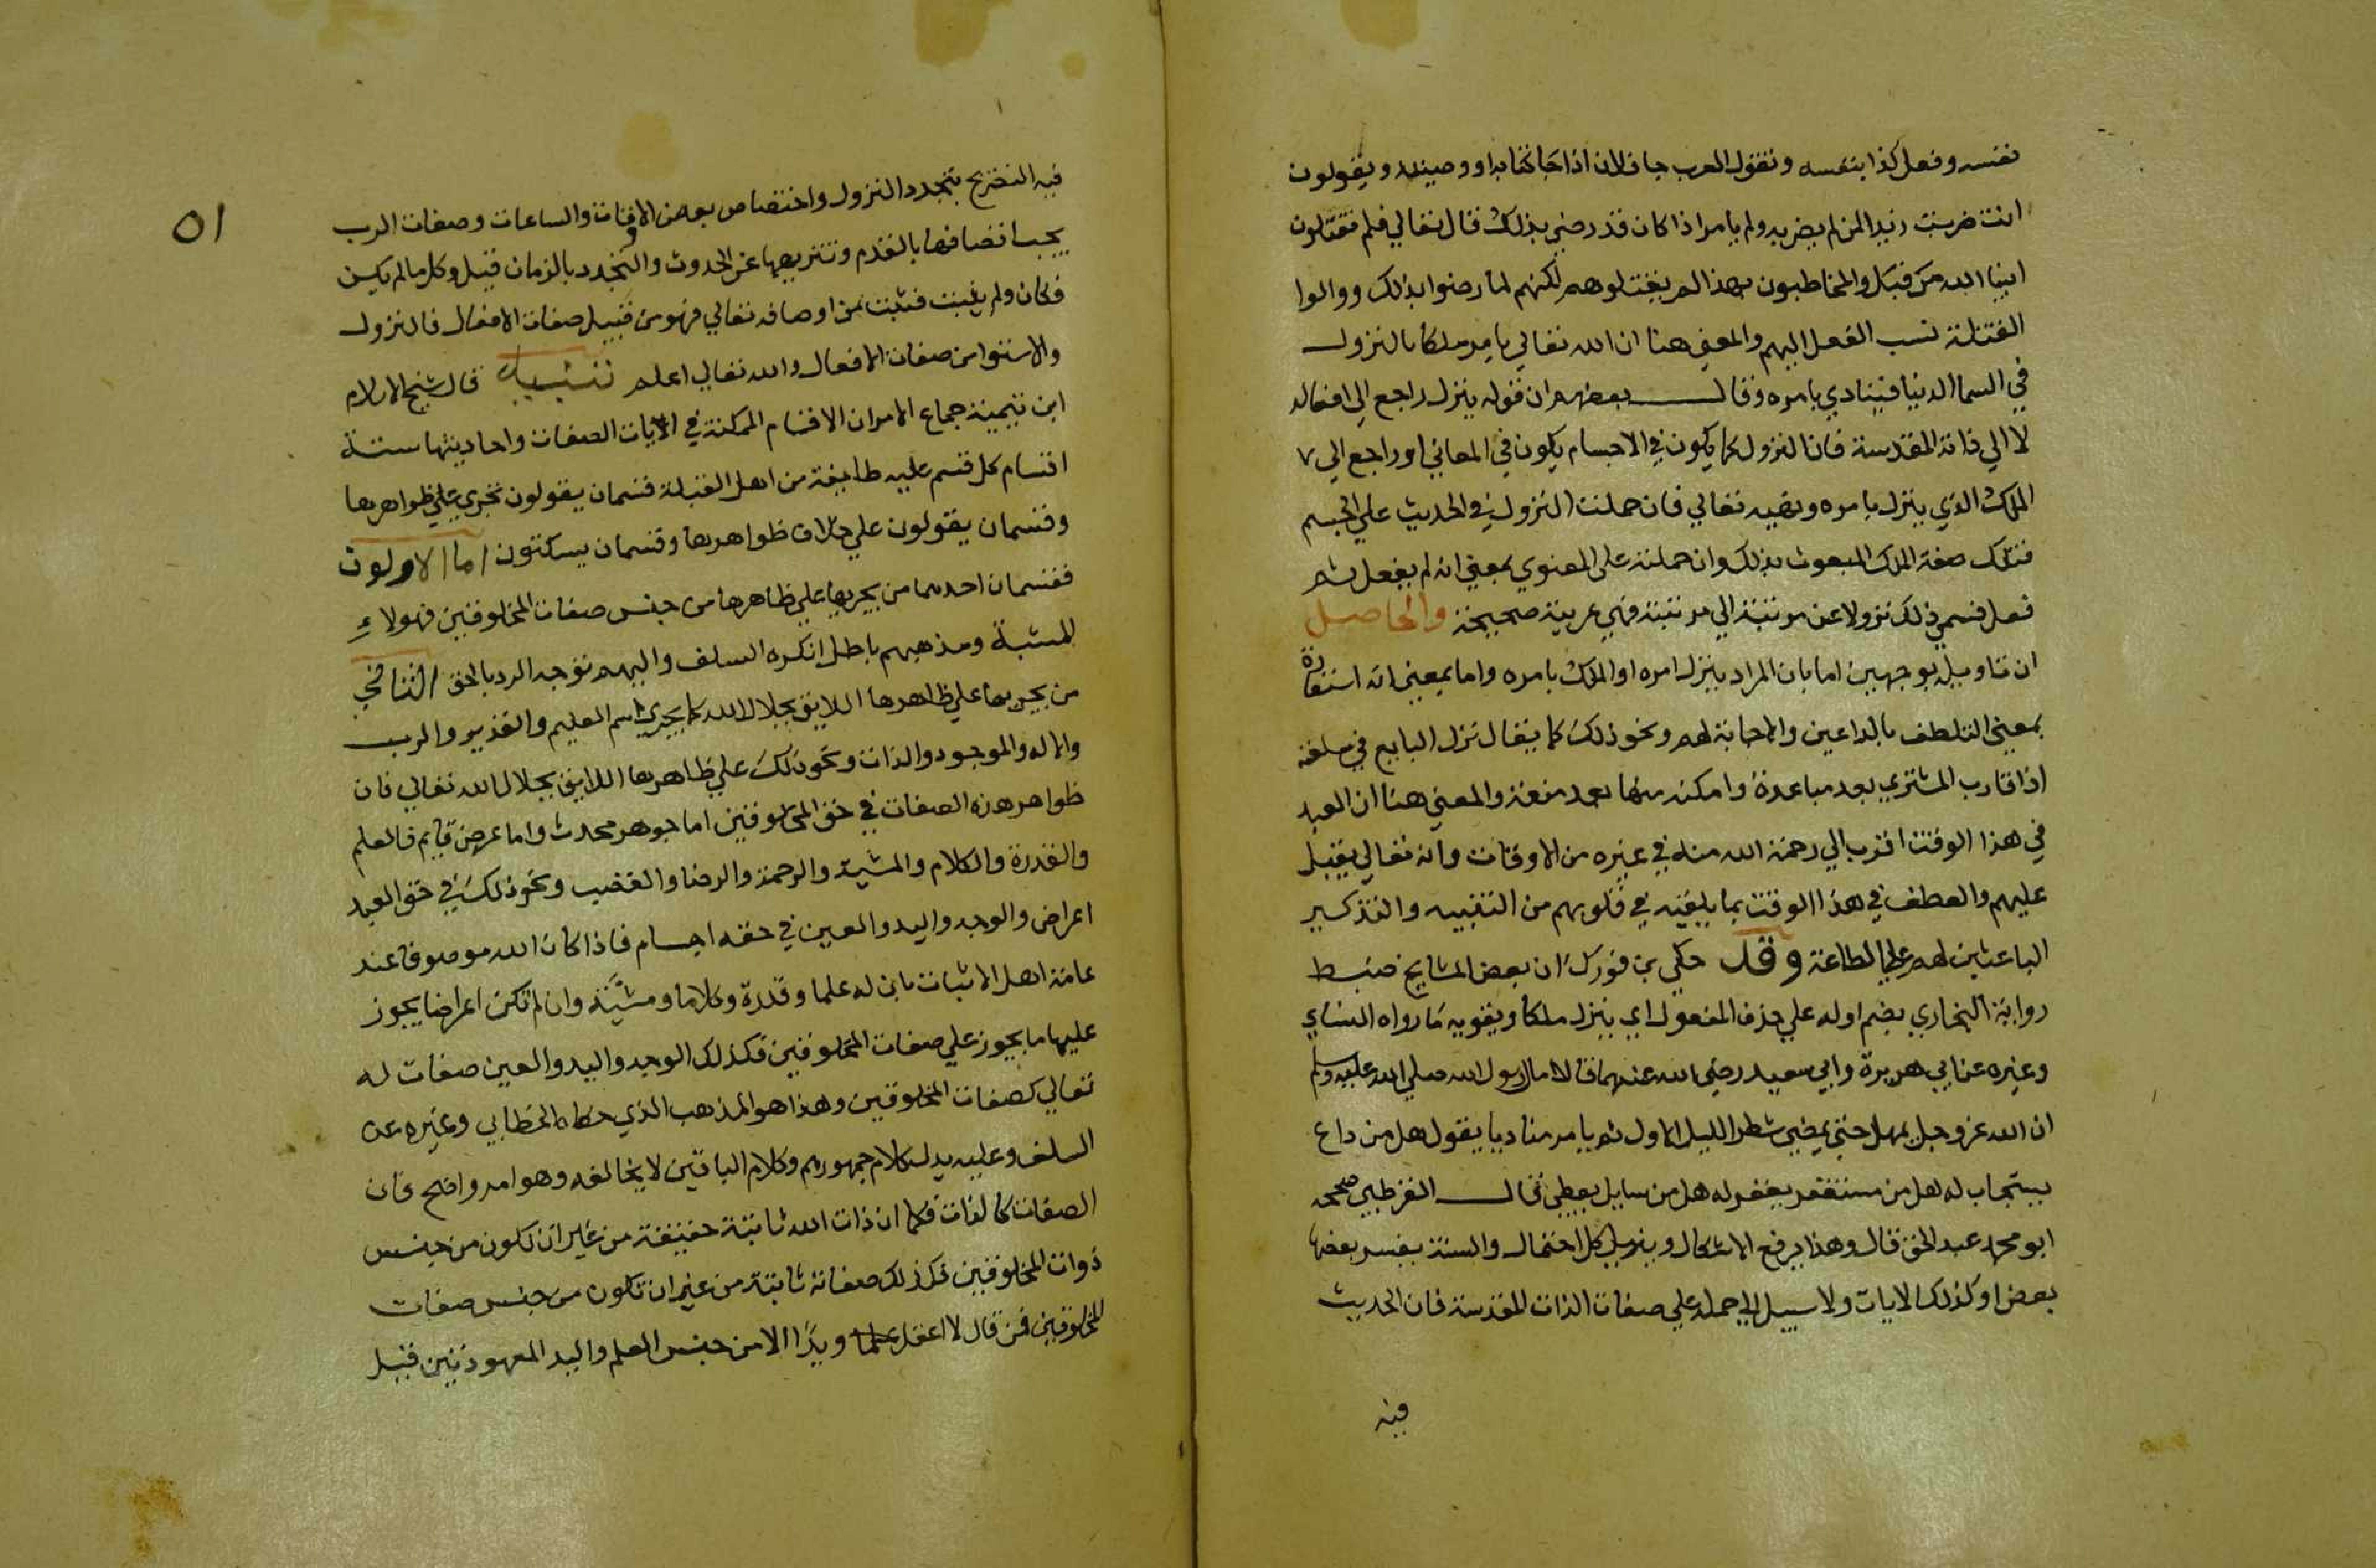 نفسه وفعل كذا بنفسه وتقول العرب جا فلان اذا جا كتابه او وصيته ويقولون
انت ضربت زيدا لمن لم يضربه ولم يامر اذا كان قد رضي بذلك قال تعالي فلم تقتلون
انبيا الله من قبل والمخاطبون بهذا لم يقتلوهم لكنهم لما رضوا بذلك ووالوا
القتلة نسب الفعل اليهم والمعني هنا ان الله تعالي يامر ملكا بالنزول
في السما الدنيا فينادي بامره وقال بعضهم ان قوله ينزل راجع الي افعاله
لا الي ذاته المقدسة فان النزول كما يكون في الاجسام يكون في المعاني او راجع الي
الملك الذي ينزل بامره ونهيه تعالي فان حملت النزول في الحديث علي الجسم
فتلك صفة الملك المبعوث بذلك وان حملته على المعنوي بمعني انه لم يفعل ثم
فعل فسمي ذلك نزولا عن مرتبة الي مرتبة فهي عربية صحيحة والحاصل
ان تاويله بوجهين اما بان المراد ينزل امره او الملك بامره واما بمعني انه استعارة
بمعني التلطف بالداعين والاجابة لهم ونحو ذلك كما يقال نزل البايع في سلعته
اذا قارب المشتري بعد مباعدة وامكنه منها بعد منعة والمعني هنا ان العبد
في هذا الوقت اقرب الي رحمة الله منه في غيره من الاوقات وانه تعالي يقبل
عليهم والعطف في هذا الوقت بما يلقيه في قلوبهم من التنبيه والتذكير
الباعثين لهم علي الطاعة وقد حكي بن فورك ان بعض المشايخ ضبط
رواية البخاري بضم اوله علي حذف المفعول اي ينزل ملكا ويقويه ما رواه النساي
وغيره عن ابي هريرة وابي سعيد رضي الله عنهما قالا قال رسول الله صلي الله عليه وسلم
ان الله عز وجل يمهل حتي يمضي شطر الليل الاول ثم يامر مناديا يقول هل من داع
يستجاب له هل من مستغفر يغفر له هل من سايل يعطي قال القرطبي صححه
ابو محمد عبد الحق قال وهذا يرفع الاشكال ويزيل كل احتمال والسنة يفسر بعضها
بعضا وكذلك الايات ولا سبيل الي حمله علي صفات الذات المقدسة فان الحديث
فيه
٥١
فيه التصريح بتجدد النزول واختصاص بعض الاوقات والساعات وصفات الرب
يجب اتصافها بالقدم وتنزيهها عن الحدوث والتجدد بالزمان قيل وكل ما لم يكن
فكان ولم يثبت فثبت من اوصافه تعالي فهو من قبيل صفات الافعال فالنزول
والاستوا من صفات الافعال والله تعالي اعلم تنبيه قال شيخ الاسلام
ابن تيمية جماع الامر ان الاقسام الممكنة في ايات الصفات واحاديثها ستة
اقسام كل قسم عليه طايفة من اهل القبلة قسمان يقولون تجري علي ظواهرها
وقسمان يقولون علي خلاف ظواهرها وقسمان يسكتون اما الاولون
فقسمان احدهما من يجريها علي ظاهرها من جنس صفات المخلوقين فهولاءِ
المشبهة ومذهبهم باطل انكره السلف واليهم توجه الرد بالحق الثاني
من يجريها علي ظاهرها اللايق بجلال الله كما يجري اسم العليم والقدير والرب
والاله والموجود والذات ونحو ذلك علي ظاهرها اللايق بجلال الله تعالي فان
ظواهر هذه الصفات في حق المخلوقين اما جوهر محدث واما عرض قايم فالعلم
والقدرة والكلام والمشية والرحمة والرضا والغضب ونحو ذلك في حق العبد
اعراض والوجه واليد والعين في حقه اجسام فاذا كان الله موصوفا عند
عامة اهل الاثبات بان له علما وقدرة وكلاما ومشيّة وان لم تكن اعراضا يجوز
عليها ما يجوز علي صفات المخلوقين فكذلك الوجه واليد والعين صفات له
تعالي كصفات المخلوقين وهذا هو المذهب الذي حكاه الخطابي وغيره عن
السلف وعليه يدل كلام جمهورهم وكلام الباقين لا يخالفه وهو امر واضح فان
الصفات كالذات فكما ان ذات الله ثابتة حقيقة من غير ان تكون من جنس
ذوات المخلوقين فكذلك صفاته ثابتة من غير ان تكون من جنس صفات
المخلوقين فمن قال لا اعقل علما ويدًا الا من جنس العلم واليد المعهودتين قيل